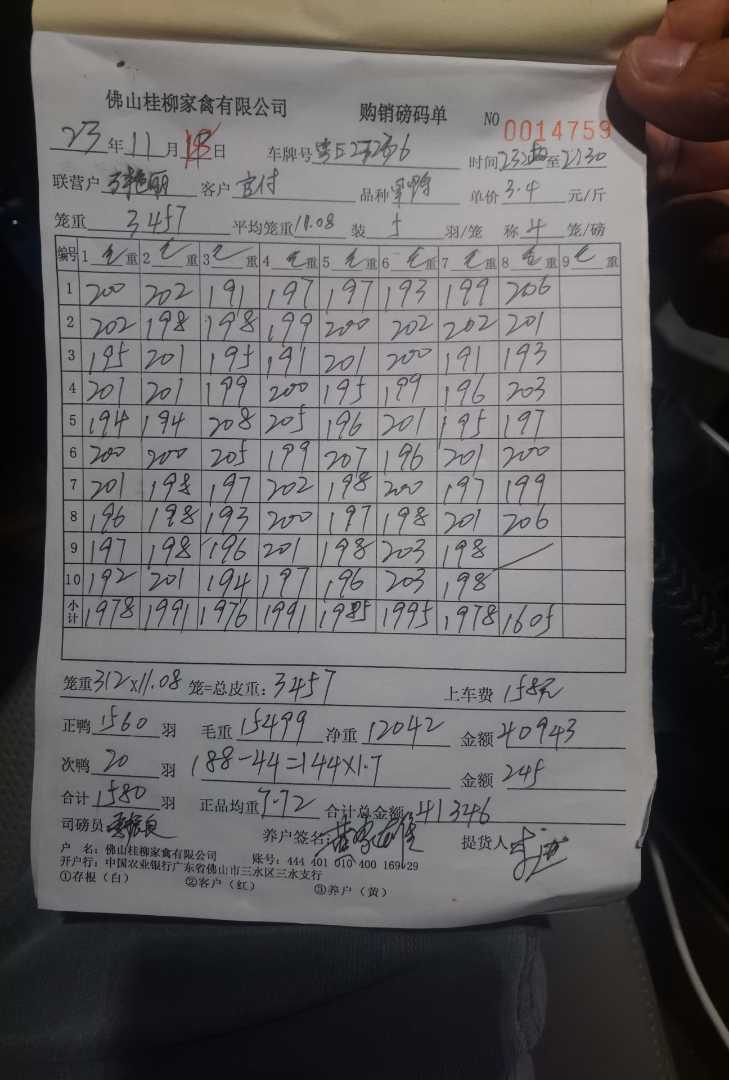 佛山桂柳家禽有限公司 购销磅码单 NO 0014759
23年11月13日 车牌号 时间 至2130
联营户 客户 品种 单价3.4元/斤
笼重3457 平均笼重11.08 装5羽/笼 称4笼/磅
编号 1毛重 2毛重 3毛重 4毛重 5毛重 6毛重 7毛重 8毛重 9毛重
1 200 202 191 197 197 193 199 206
2 202 198 198 199 200 202 202 201
3 195 201 195 191 201 200 191 193
4 201 201 199 200 195 199 196 203
5 194 194 208 205 196 201 195 197
6 200 200 205 199 207 196 201 200
7 201 198 197 202 198 200 197 199
8 196 198 193 200 197 198 201 206
9 197 198 196 201 198 203 198
10 192 201 194 197 196 203 198
小计 1978 1991 1976 1991 1985 1995 1978 1605
笼重312×11.08笼=总皮重:3457 上车费158元
正鸭1560羽 毛重15499 净重12042 金额40943
次鸭20羽 188-44=144×1.7 金额245
合计1580羽 正品均重7.72 合计总金额41346
司磅员 养户签名: 提货人
户 名:佛山桂柳家禽有限公司 账号:444 401 010 400 169 29
开户行:中国农业银行广东省佛山市三水区三水支行
①存根(白) ②客户(红) ③养户(黄)